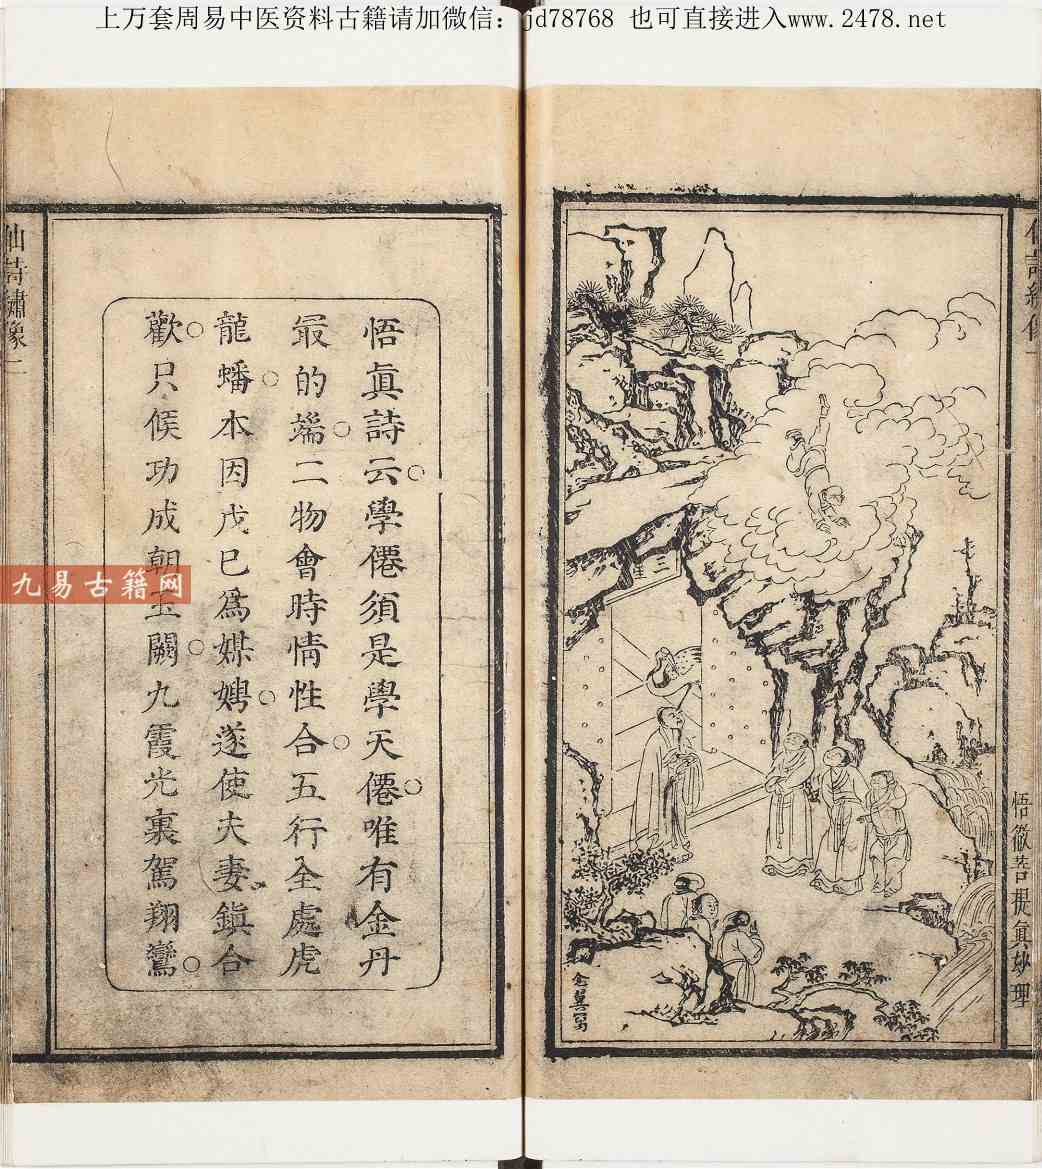 上万套周易中医资料古籍请加微信：jd78768 也可直接进入www.2478.net
悟徹菩提真妙理
三星
悟眞詩云學僊須是學天僊唯有金丹
最的端二物會時情性合五行全處虎
龍蟠本因戊己爲媒娉遂使夫妻鎭合
歡只候功成朝玉闕九霞光裏駕翔鸞
仙詩繡像二
九易古籍网